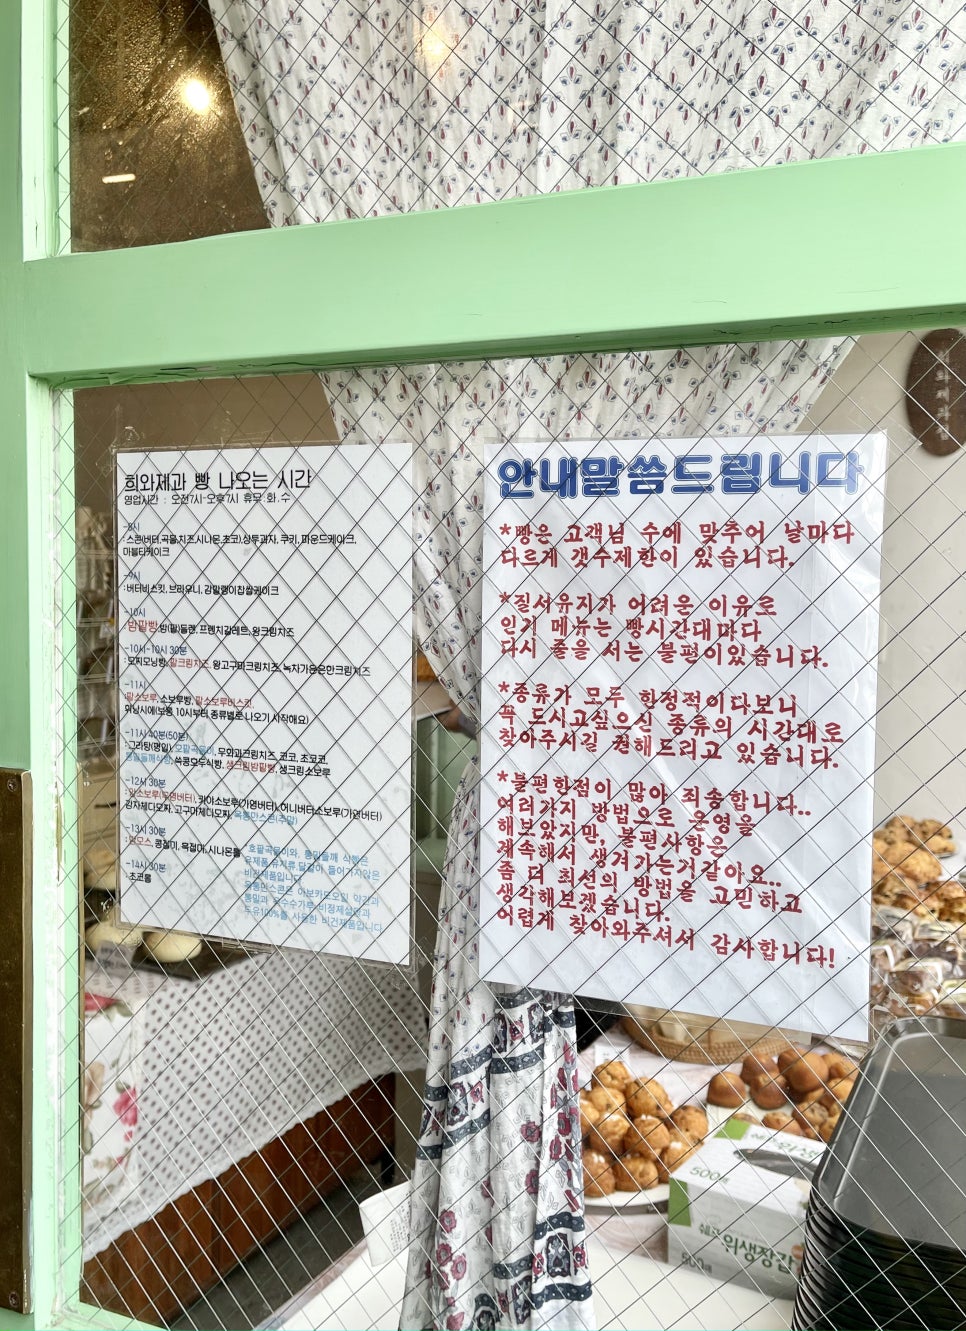 희와제과 빵 나오는 시간
영업시간 : 오전7시-오후7시 휴무 화.수
-8시
: 스콘(버터,곡물,치즈,시나몬,초코),상투과자, 쿠키, 파운드케이크,
마블타케이크
-9시
: 버터비스킷, 브라우니, 강말랭이찹쌀케이크
-10시
: 밤팥빵, 밤(팥)들렌, 프렌치갈레트, 왕크림치즈
-10시-10시 30분
: 모찌모닝빵, 팥크림치즈, 왕고구마크림치즈, 녹차가듬은한크림치즈
-11시
: 팥소보루, 소보루빵, 팥소보루비스킷,
휘낭시에(보통 10시부터 종류별로 나오기 시작해요)
-11시 40분(50분)
: 그라탕(평일), 호팥곡물이, 무화과크림치즈, 코코, 초코코,
통밀들깨식빵, 쑥콩모두식빵, 생크림밤팥빵, 생크림소보루
-12시 30분
: 맘소보루(가염버터), 카야소보루(가염버터), 허니버터소보루(가염버터)
감자체다모찌, 고구마체다모찌, 옥통민스콘(주말)
-13시 30분
: 맘모스, 콩절미, 쑥절미, 시나몬롤
-14시 30분
: 초코롤
호팥곡물이와, 통밀들깨 식빵은
유제품,유지류,달걀이 들어가지않은
비건제품입니다
옥통민스콘은 아보카도오일 약간과
통밀과 옥수수가루,비정제설탕과
두유100%를 사용한 비건제품입니다
안내말씀드립니다
*빵은 고객님 수에 맞추어 날마다
다르게 갯수제한이 있습니다.
*질서유지가 어려운 이유로
인기 메뉴는 빵시간대마다
다시 줄을 서는 불편이있습니다.
*종류가 모두 한정적이다보니
꼭 드시고싶으신 종류의 시간대로
찾아주시길 권해드리고 있습니다.
*불편한점이 많아 죄송합니다..
여러가지 방법으로 운영을
해보았지만, 불편사항은
계속해서 생겨가는거같아요..
좀 더 최선의 방법을 고민하고
생각해보겠습니다.
어렵게 찾아와주셔서 감사합니다!
500매
위생장갑
500매